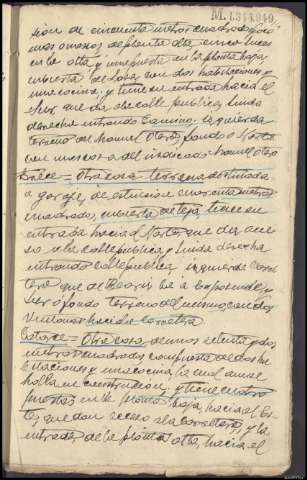 M.1.344.949
sion de cincuenta metros cuadrados poco
mas o menos, de planta alta, cinco luces
en la alta y una puerta en la planta baja,
cubierta de losa, con dos habitaciones y
una cocina; y tiene su entrada hacia el
Sur, que da a la calle publica; linda
derecha entrando Camino; izquierda
terreno de Manuel Otero; fondo o Norte
con mas casa del indicado Manuel Otero
Trece = Otra casa terrena destinada
a garaje, de extension cuarenta metros
cuadrados, cubierta de teja; tiene su
entrada hacia el Norte, que da acce
so a la calle publica; y linda derecha
entrando calle publica; izquierda carre
tera que de a
y fondo terreno del mismo caudal
carretera
Catorce = Otra casa de unos setenta y dos
metros cuadrados, compuesta de dos ha
bitaciones y una cocina, la cual aun se
halla en construccion; y tiene cuatro
puertas en la planta baja, hacia el Es
te, que dan acceso a la carretera; y la
entrada de la planta alta, hacia el